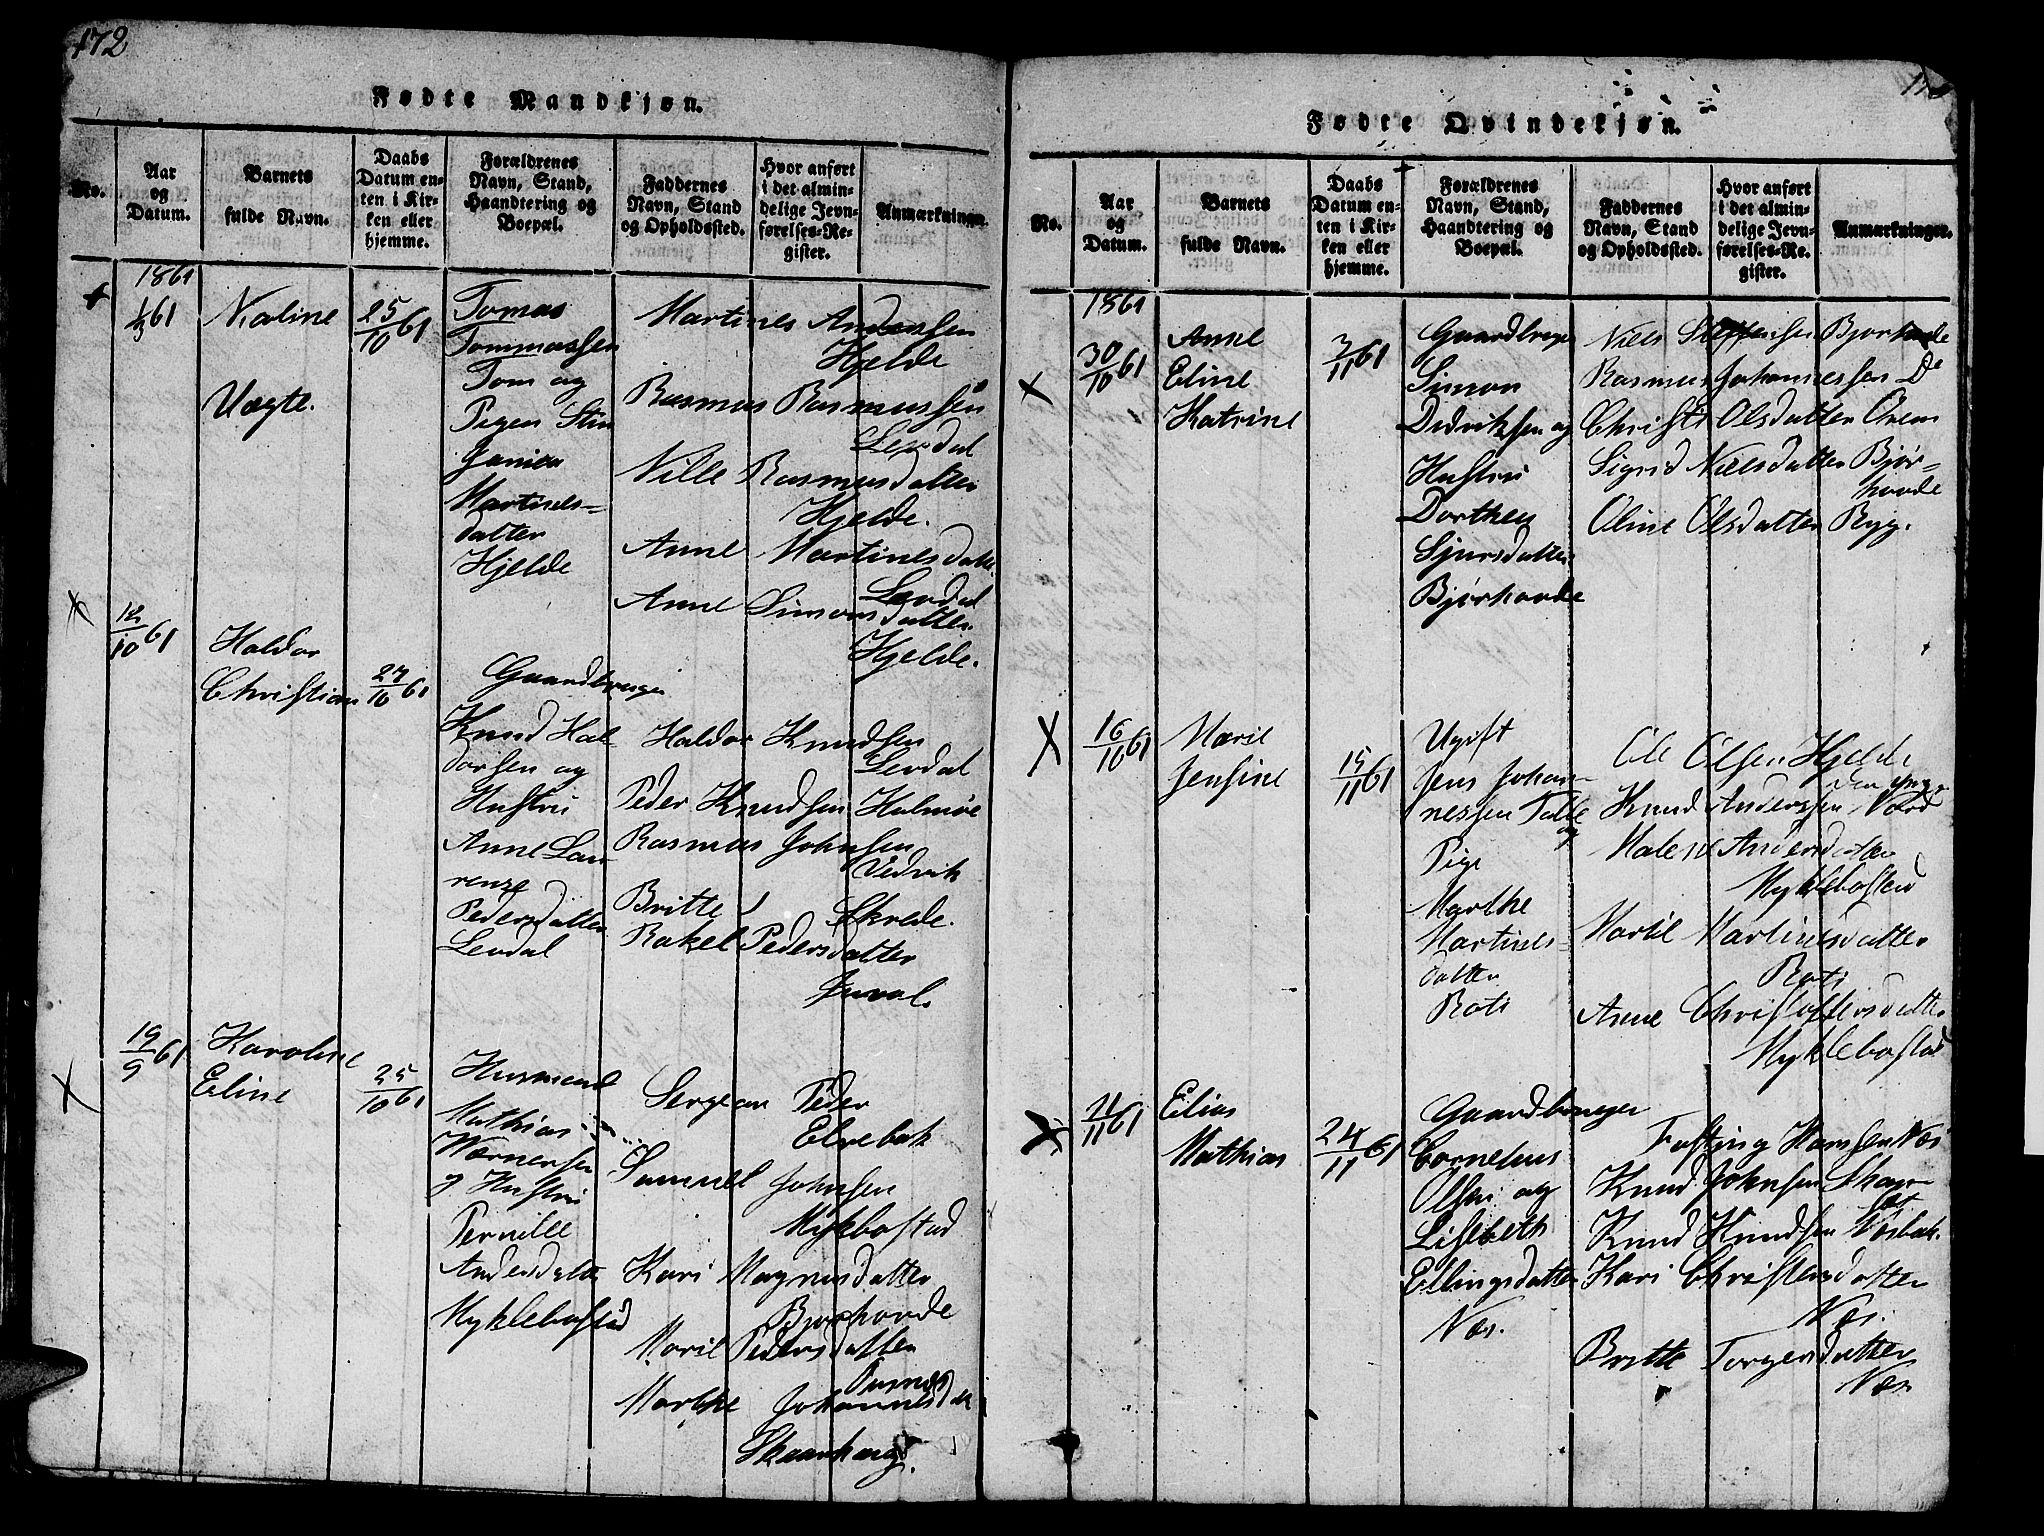 172
Fødte Mandkjøn.
No.
Aar og Datum.
Barnets fulde Navn.
Daabs Datum enten i Kirken eller hjemme.
Forældrenes Navn, Stand, Haandtering og Boepæl.
Faddernes Navn, Stand og Opholdssted.
Hvor anført i det almindelige Jevnførelses-Register.
Anmærkninger.
1861
61
Naline
Uægte.
25/10 61
Tomas
Tommassen
Tom og
Pigen Stin
Martines=
datter
Hjelde
Martines Andersen
Hjelde
Rasmus Rasmussen
Levdal
Nille Rasmusdatter
Hjelde.
Anne Martinesdatter
Levdal
Anne Simonsdatter
Hjelde.
12/10 61
Haldor
Christian
27/10 61
Gaardbruger
Knud Hal-
dorsen og
Hustru
Anne Lau-
renze
Pedersdatter
Levdal
Haldor Knudsen
Levdal
Peder Knudsen Halmøe
Rasmus Johnsen
Vedvik
Britte
Skrede.
Rakel Pedersdatter
19/9 61
Karoline
Eline
25/10 61
Husmand
Mathias
Wærnersen
og Hustru
Pernille
Andersdatter
Myklebostad
Sergean Peder
Elvebak
Samuel Johnsen
Myklbostad
Kari Magnusdatter
Bjørhovde
Marit Pedersdatter
Marthe Johannesd
Fødte Qvindekjøn.
No.
Aar og Datum.
Barnets fulde Navn.
Daabs Datum enten i Kirken eller hjemme.
Forældrenes Navn, Stand, Haandtering og Boepæl.
Faddernes Navn, Stand og Opholdssted.
Hvor anført i det almindelige Jevnførelses-Register.
Anmærkninger.
1861
30/10 61
Anne
Eline
Katrine
3/11 61
Gaardbruger
Simon
Didriksen og
Hustru
Dorthea
Sjursdatter
Bjørhovde
Niels Steffensen Bjørhovde
Rasmus Johannessen De
Christi Olsdatter Øren
Sigrid Nielsdatter Bjør=
hovde
Oline Olsdatter Ryg.
16/10 61
Marie
Jensine
15/11 61
Ugift
Jens Johan-
nessen Talle
og
Pige
Marthe
Martines-
datter
Roti
Ole Olsen Hjelde
Knud Anderssen Nord
Malene Andersdatter
Myklebostad
Marie Martinesdatter
Roti
Anne Christoffersdatter
Myklebostad
11/11 61
Elias
Mathias
24/11 61
Gaardbruger
Cornelius
Olsen og
Lisebeth
Ellingsdatter
Næs.
Fasting Hansen Næs
Knud Johnsen
Knud Knudsen Næsbak.
Kari Christensdatter
Næs.
Britte Torgersdatter
Næs